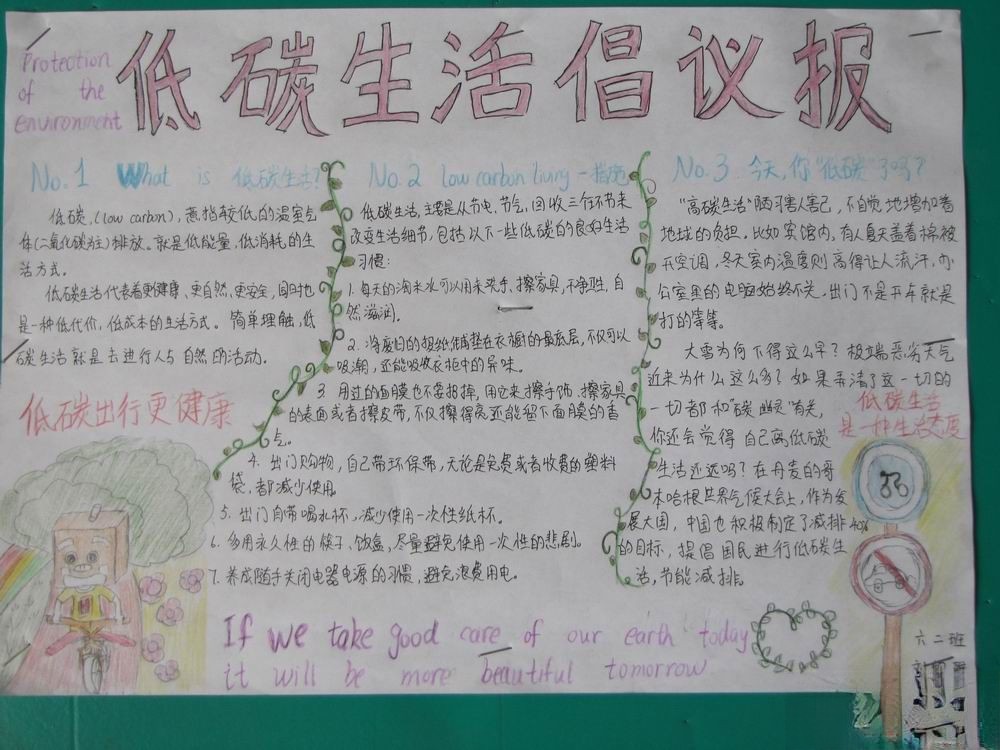 Protection
of the
environment
低碳生活倡议报
No.1 What is 低碳生活?
低碳,(low carbon),意指较低的温室气
体(二氧化碳为主)排放。就是低能量,低消耗的生
活方式。
低碳生活代表着更健康、更自然、更安全,同时也
是一种低代价,低成本的生活方式。简单理解,低
碳生活就是去进行人与自然的活动。
低碳出行更健康
No.2 low carbon living-指施
低碳生活,主要是从节电、节气,回收三个环节来
改变生活细节,包括以下一些低碳的良好生活
习惯:
1. 每天的淘米水可以用来洗手、擦家具,干净卫生,自
然滋润。
2. 将废旧的报纸铺垫在衣橱的最底层,不仅可以
吸潮,还能吸收衣柜中的异味。
3 用过的面膜也不要扔掉,用它来擦手饰、擦家具
的表面或者擦皮带,不仅擦得亮还能留下面膜的香
气。
4. 出门购物,自己带环保带,无论是免费或者收费的塑料
袋,都减少使用。
5. 出门自带喝水杯,减少使用一次性纸杯。
6. 多用永久性的筷子、饭盒,尽量避免使用一次性的悲剧。
7. 养成随手关闭电器电源的习惯,避免浪费用电。
No.3 今天,你"低碳"了吗?
"高碳生活"陋习害人害己,不自觉地增加着
地球的负担。比如宾馆内,有人夏天盖着棉被
开空调,冬天室内温度则高得让人流汗,办
公室里的电脑始终不关,出门不是开车就是
打的等等。
大雪为何下得这么早?极端恶劣天气
近来为什么这么多?如果弄清了这一切的
一切都和"碳幽灵"有关,
你还会觉得自己离低碳
生活还远吗?在丹麦的哥
本哈根世界气候大会上,作为发
展大国,中国也积极制定了减排40%
的目标,提倡国民进行低碳生
活,节能减排。
低碳生活
是一种生活态度
If we take good care of our earth today
it will be more beautiful tomorrow
六二班